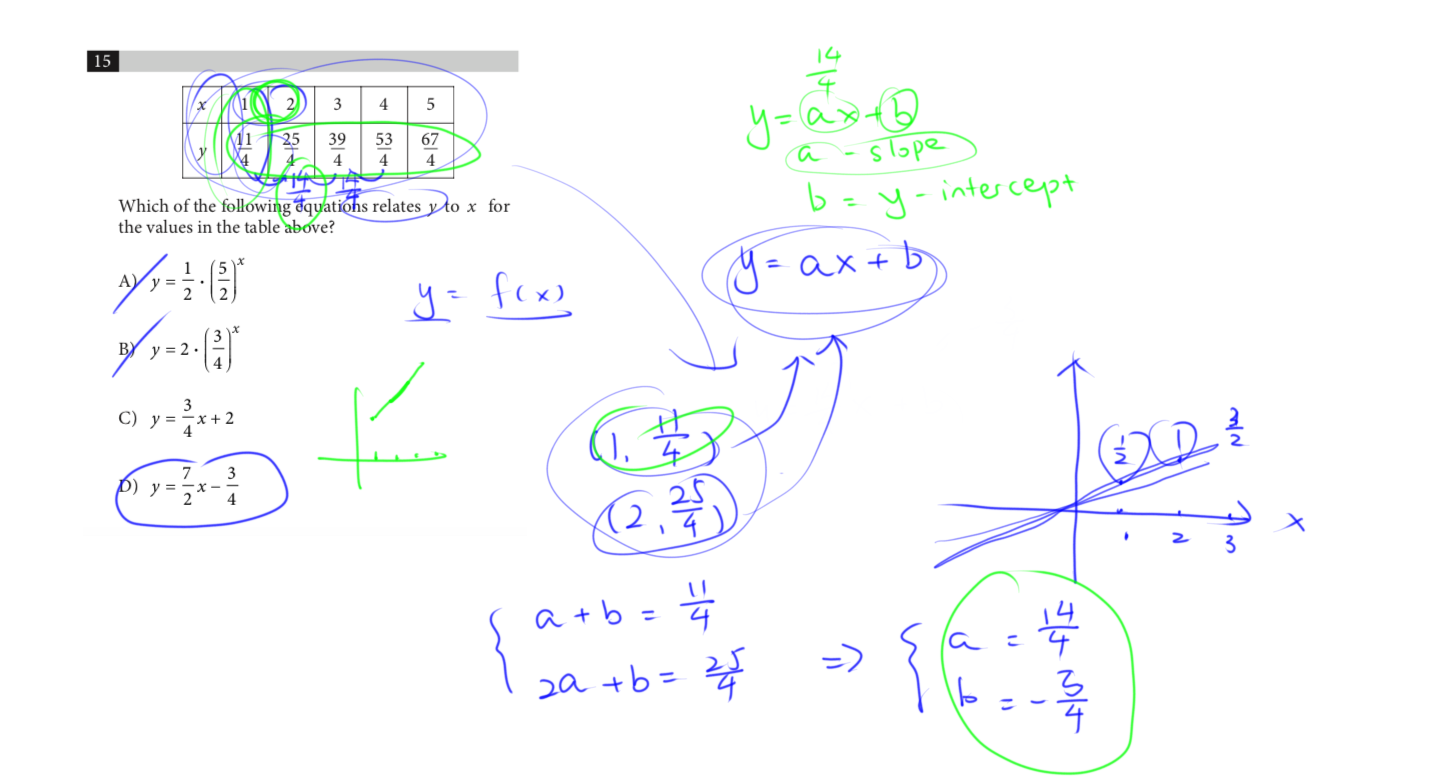 15
x 1 2 3 4 5
y 11/4 25/4 39/4 53/4 67/4
14/4 14/4
Which of the following equations relates y to x for
the values in the table above?
A) y = 1/2 · (5/2)^x
B) y = 2 · (3/4)^x
C) y = 3/4 x + 2
D) y = 7/2 x − 3/4
14/4
y = ax + b
a - slope
b = y - intercept
y = ax + b
y = f(x)
(1, 11/4)
(2, 25/4)
1/2 1 3/2
1 2 3 x
{ a + b = 11/4
2a + b = 25/4
=> { a = 14/4
b = - 3/4